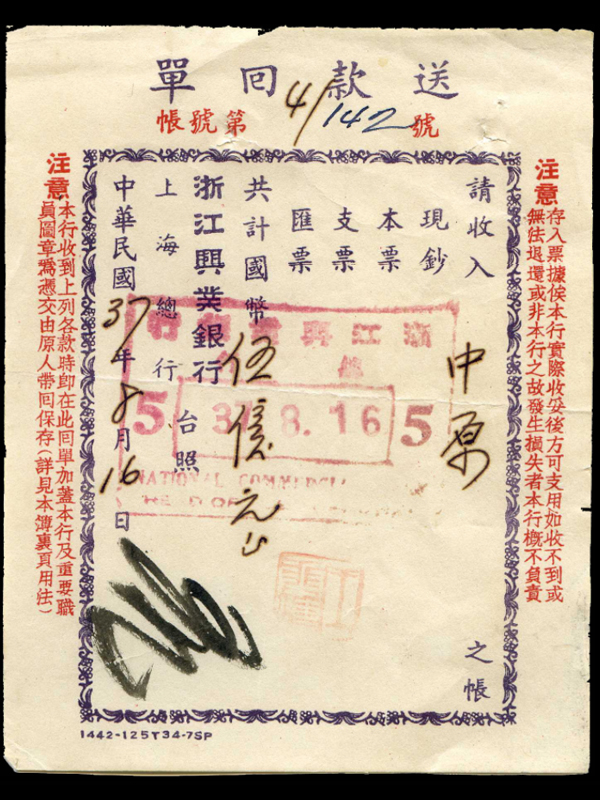 送款回單
帳號第4/142號
注意
存入票據俟本行實際收妥後方可支用如收不到或
無法退還或非本行之故發生損失者本行概不負責
請收入 中原 之帳
現鈔
本票
支票
匯票
共計國幣 伍億元正
浙江興業銀行 台照
上海總行
中華民國37年8月16日
浙江興業銀行
5 37.8.16 5
NATIONAL COMMERCIAL
HEAD OF
注意
本行收到上列各款時即在此回單加蓋本行及重要職
員圖章為憑交由原人帶回保存(詳見本簿裏頁用法)
1442-125T34-7SP